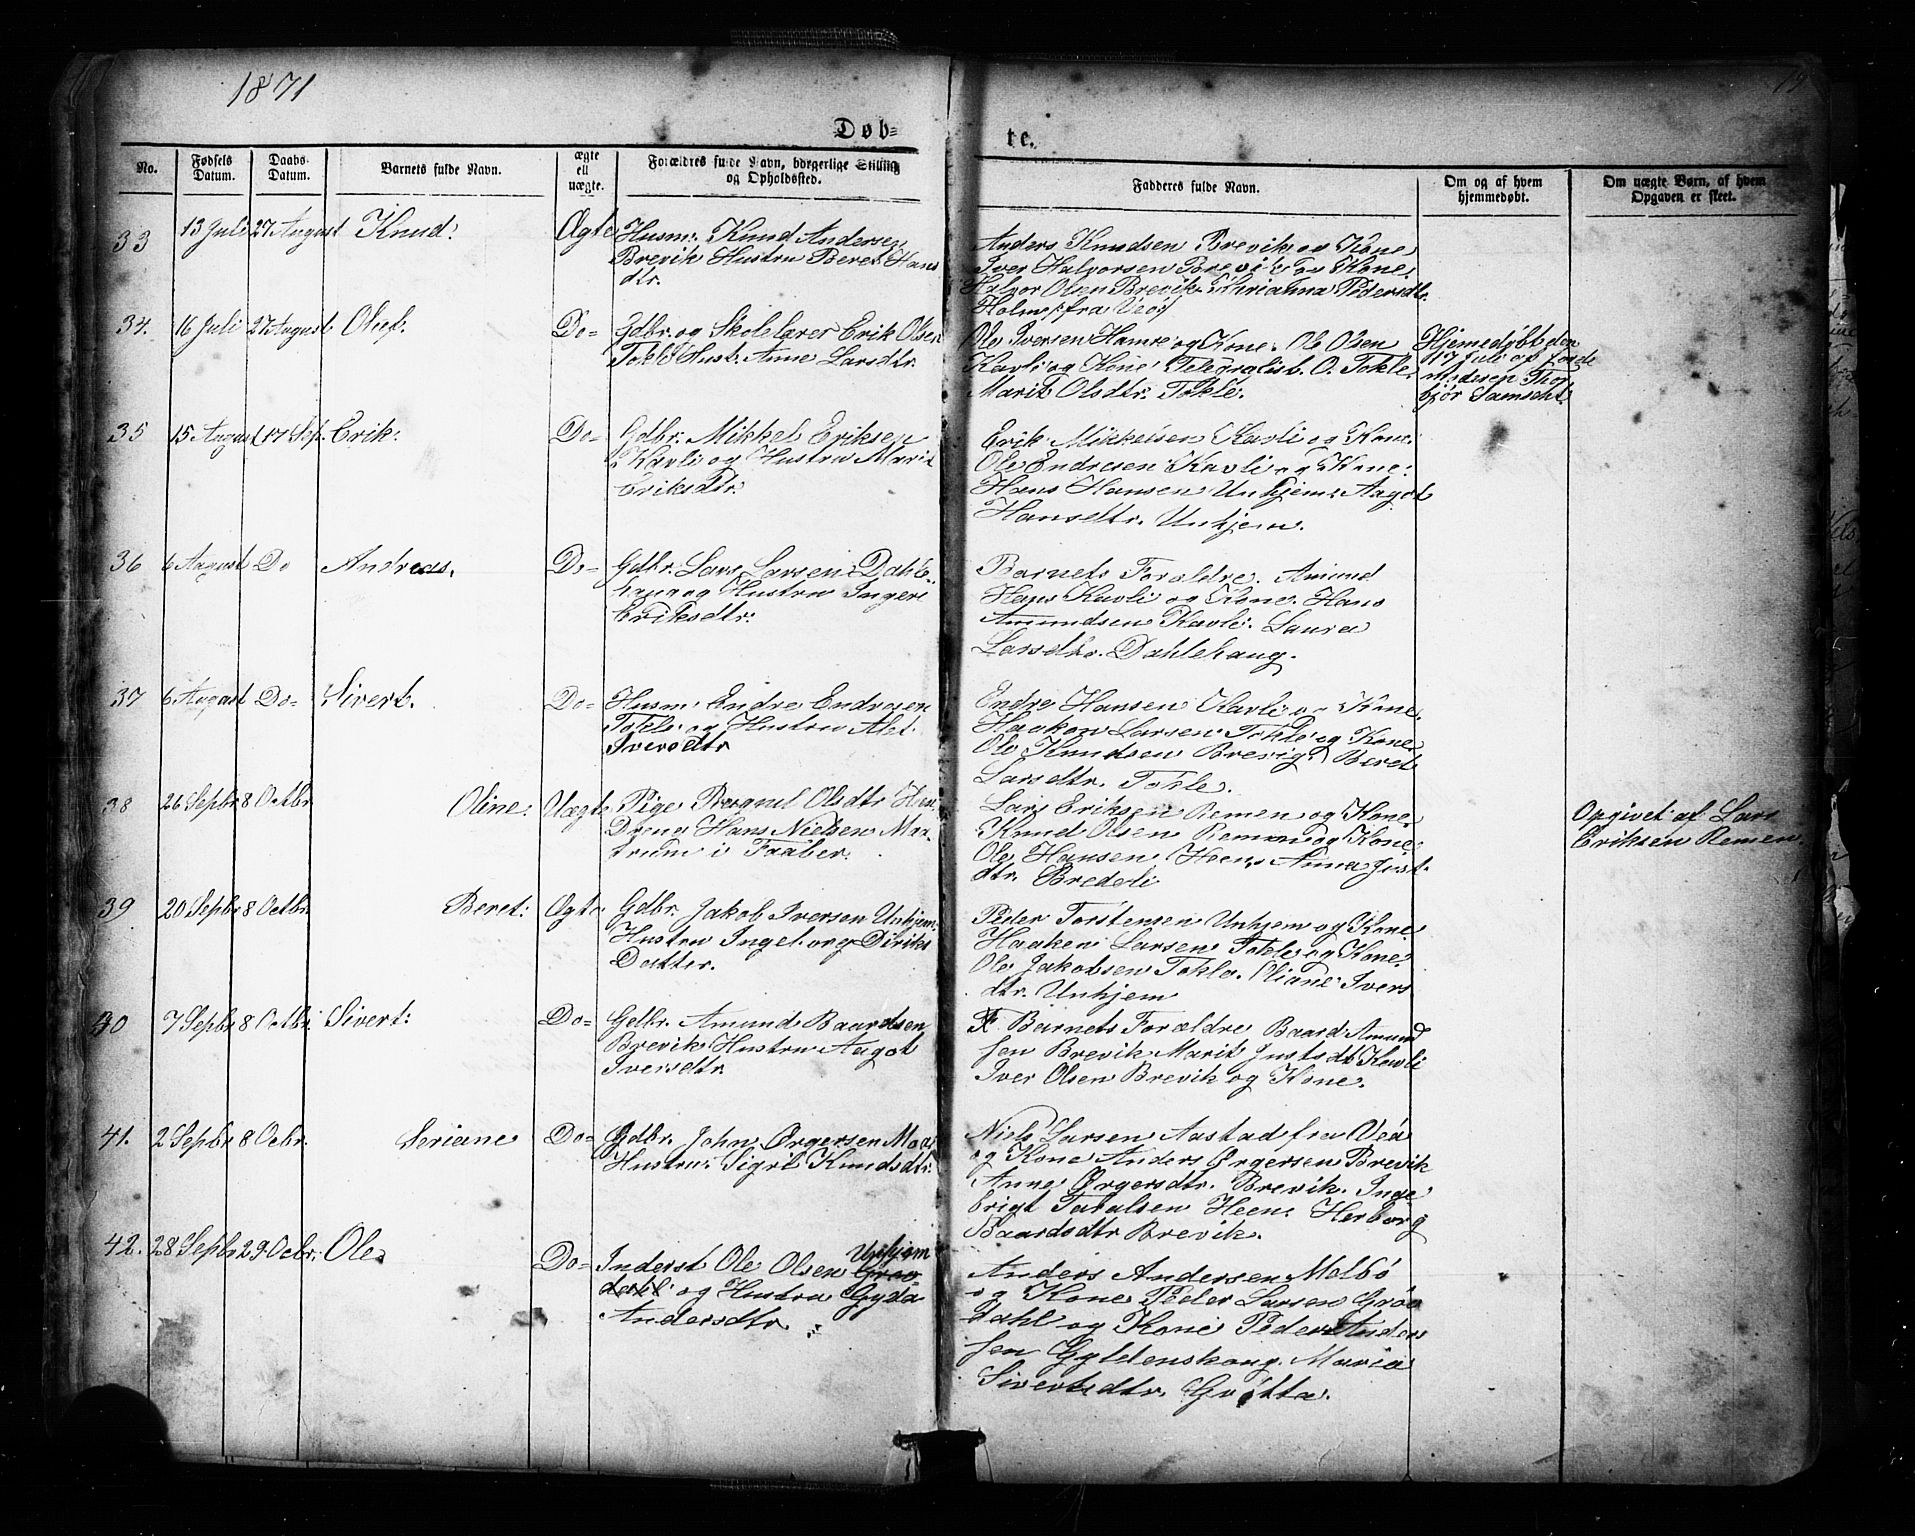 1871
19
Døb=
te.
No.
Fødsels Datum.
Daabs Datum.
Barnets fulde Navn.
ægte ell uægte.
Forældres fulde Navn, borgerlige Stilling og Opholdssted.
Fadderes fulde Navn.
Om og af hvem hjemmedøbt.
Om uægte Børn, af hvem Opgaven er skeet.
33 13 Juli 27 August Knud. Ægte
Husm: Knud Andersen
Brevik Hustru Beret Hans
dtr.
Anders Knudsen Brevik og Kone
Iver Halvorsen Brevik og Kone.
Halvor Olsen Brevik. Pedersdtr.
Holmen fra Veø
34. 16 Juli 27 August Oluf. Do-
Gdbr. og Skolelærer Erik Olsen
Tokle Hust. Anne Larsdtr.
Ole Iversen Hamre og Kone. Ole Olsen
Kavli og Kone Telegrafistb. O. Tokle.
Marit Olsdtr. Tokle.
Hjemedøbt den
17 Juli af Jorde
moderen Thor
bjør
35 15 August 17 Sep. Erik: Do-
Gdbr. Mikkel Eriksen
Kavli og Hustru Marit
Eriksdtr.
Erik Mikkelsen Kavli og Kone.
Ole Endresen Kavli og Kone.
Hans Hansen Unhjem. Aagot
Hansdtr. Unhjem.
36 6 August Do Andreas. Do-
Gdbr. Lars Larsen Dahle
haug og Hustru Inger
Eriksdtr.
Barnets Forældre. Amund
Hans Kavli og Kone. Hans
Amundsen Kavli. Laura
Larsdtr. Dahlehaug.
37 6 August Do- Sivert. Do-
Husm: Endre Endresen
Tokle og Hustru Alet
Iversdtr
Endre Hansen Kavli og Kone.
Haakon Larsen Tokle og Kone
Ole Knudsen Brevig. Beret
Larsdtr. Tokle.
38 26 Sepbr 8 Octbr Oline: Uægte
Pige Ragnil Olsdtr
Dreng Hans Nielsen
i Faaber.
Lars Eriksen Remen og Kone.
Knud Olsen Remen og Kone
Ole Hansen Heen. Anna Just
dtr. Bredeli
Opgivet af Lars
Eriksen Remen.
39 20 Sepbr 8 Octbr. Beret: Ægte
Gdbr. Jakob Iversen Unhjem
Hustru Ingeborg Diriks
Datter.
Peder Torstensen Unhjem og Kone
Haaken Larsen Tokle og Kone.
Ole Jakobsen Tokle. Oliane Ivers
dtr. Unhjem
40 7 Sepbr 8 Octbr. Sivert: Do-
Gdbr. Amund Baardsen
Brevik Hustru Aagot
Iversdtr.
Barnets Forældre Baard Amund
sen Brevik Marit Justsdt Kavli
Iver Olsen Brevik og Kone.
41. 2 Sepbr 8 Ocbr. Seriane Do-
Gdbr. John Ørgersen Moa
Hustru: Sigrit Knudsdtr.
Niels Larsen Aastad fra Veø
og Kone Anders Ørgersen Brevik
Anne Ørgersdtr. Brevik. Inge
brigt Taralsen Heen. Herborg
Baardsdtr Brevik.
42. 28 Sepbr 29 Ocbr. Ole. Do-
Unhjem
Inderst Ole Olsen Grøv
dahl og Hustru Gyda
Andersdtr.
Anders Andersen Melbø
og Kone Peder Larsen Grøv
dahl og Kone Peder Ander
sen Gyldenskaug. Maria
Sivertsdtr. Grøtta.